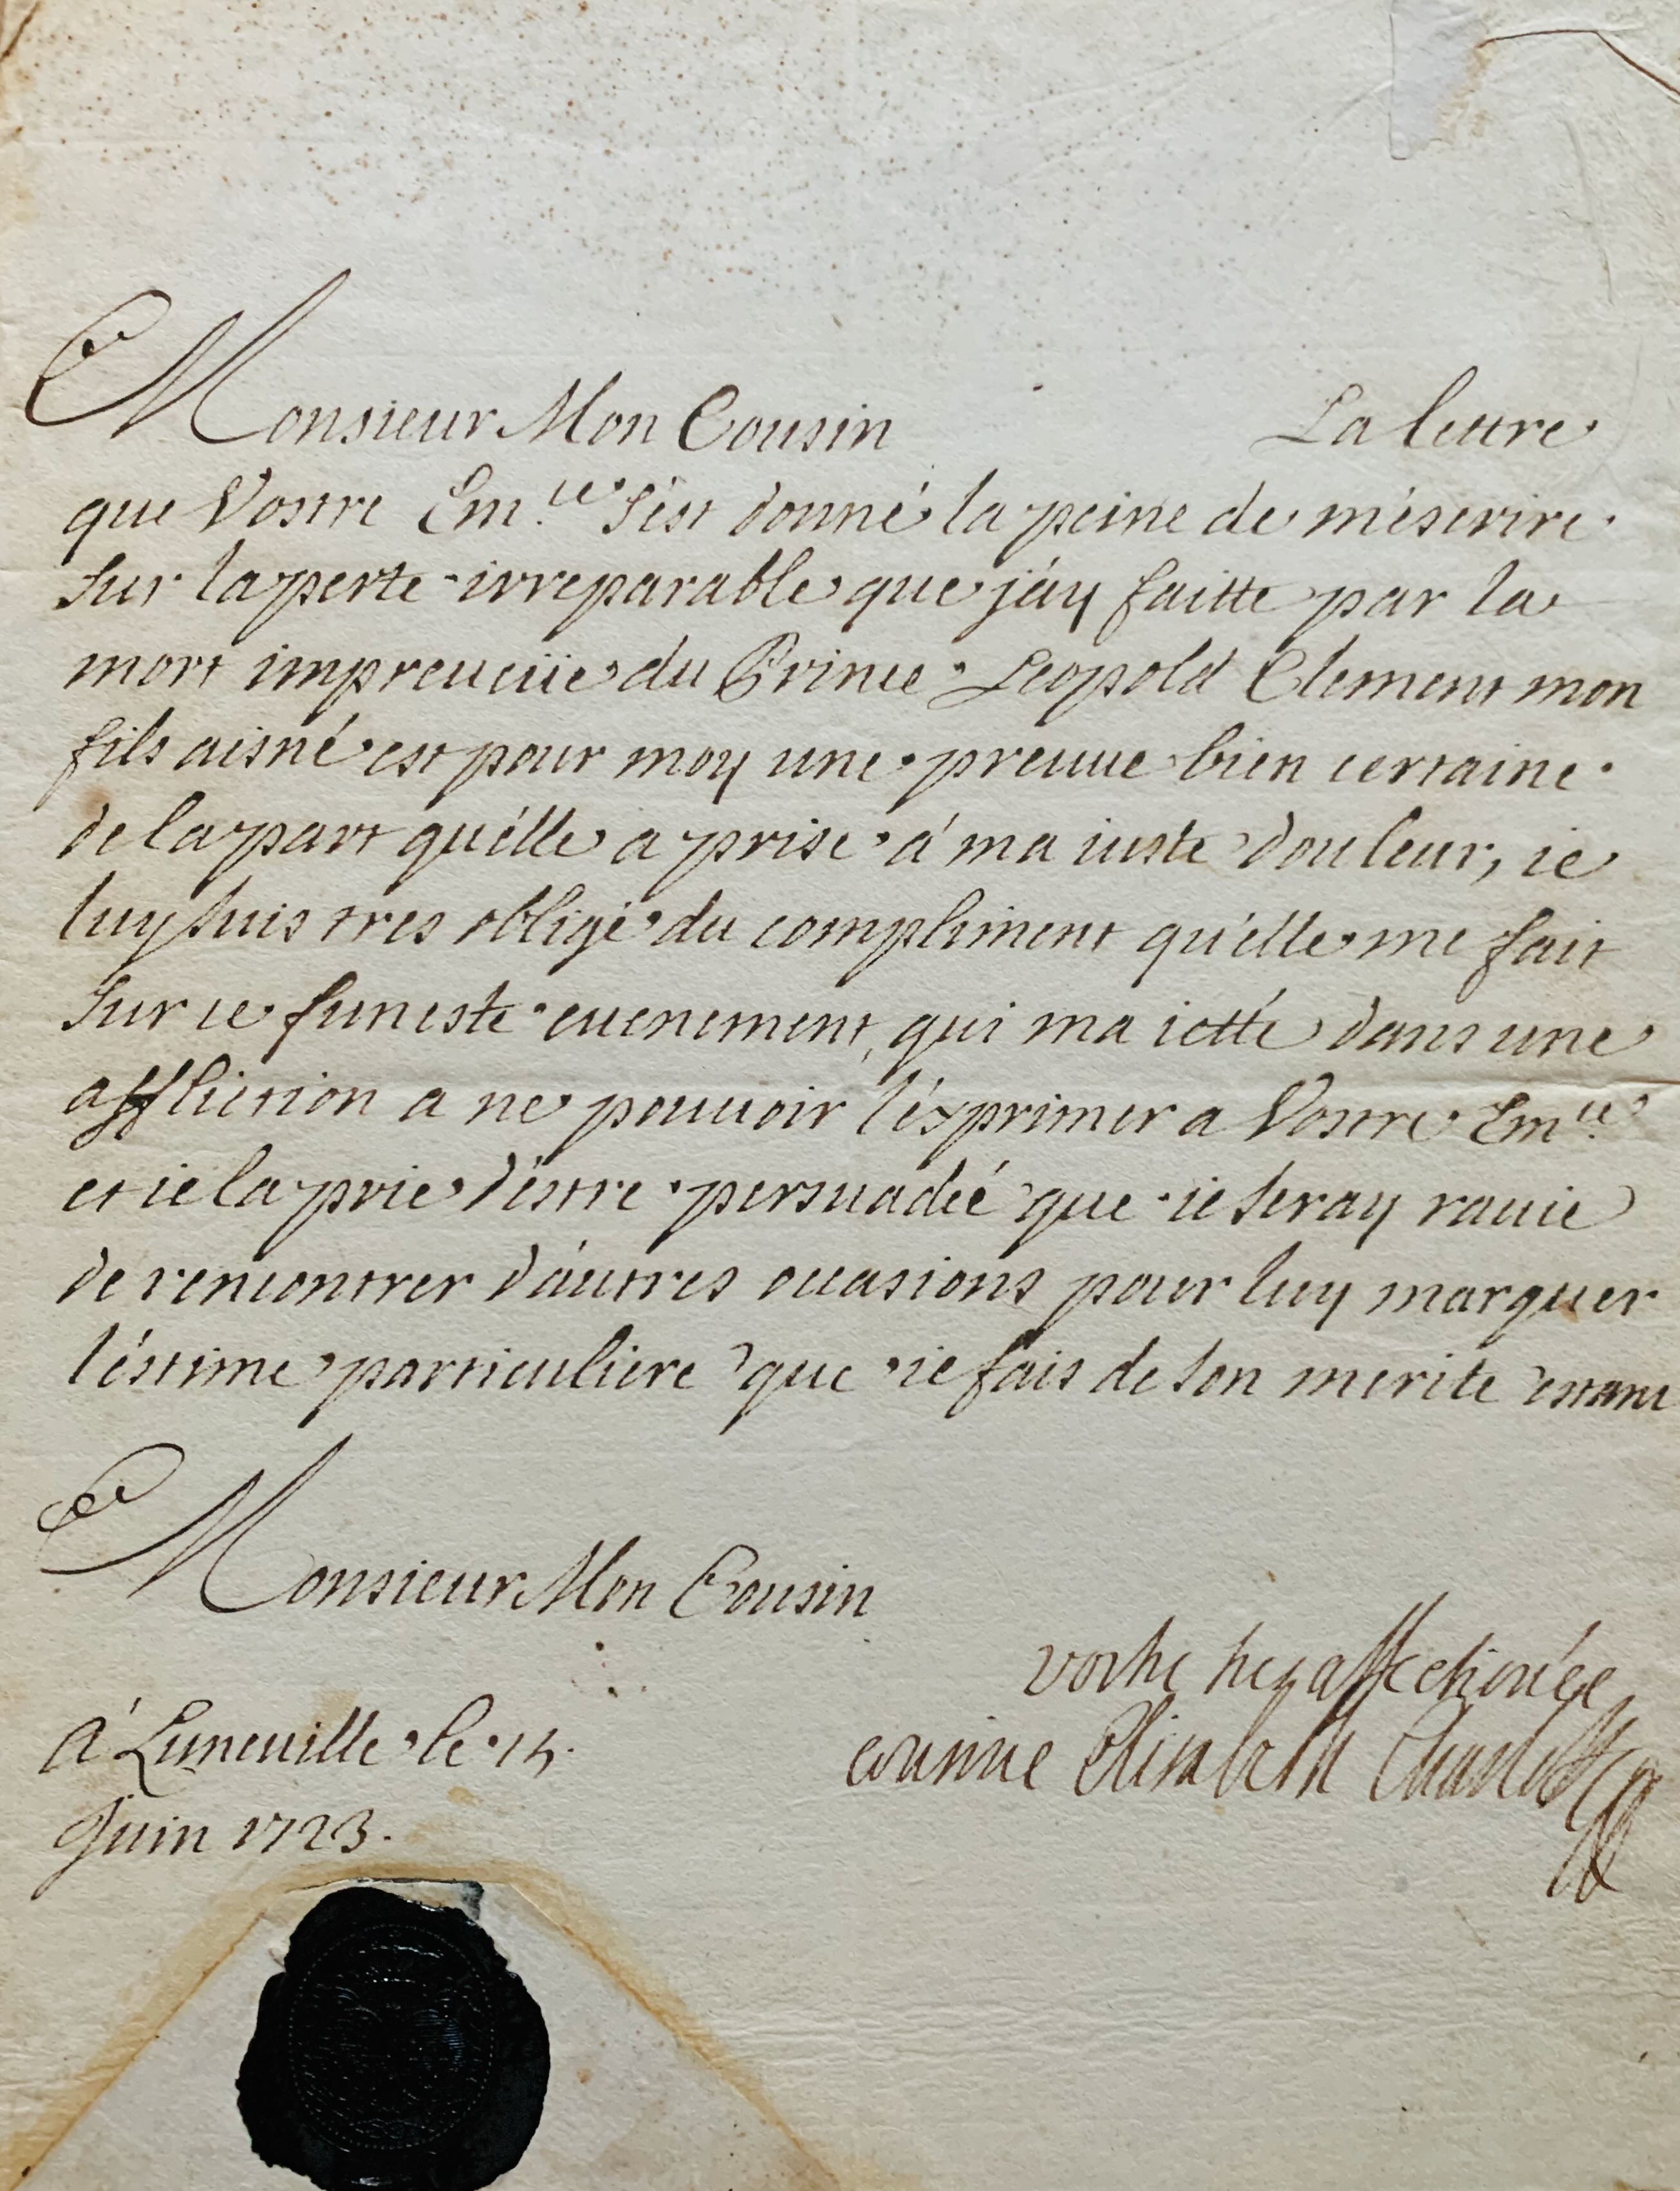 Monsieur Mon Cousin La lettre
que Vostre Em.ce s'est donné la peine de m'éscrire
sur la perte irreparable que j'ay faitte par la
mort impreueüe du Prince Leopold Clement mon
fils aisné est pour moy une preuue bien certaine
de la part qu'elle a prise á ma iuste douleur, ie
luy suis tres obligé du compliment qu'elle me fait
sur ce funeste euenement, qui ma ietté dans une
affliction a ne pouuoir l'exprimer a Vostre Em.ce
et ie la prie d'estre persuadée que ie seray rauie
de rencontrer d'autres occasions pour luy marquer
l'estime particuliere que ie fais de son merite estant
Monsieur Mon Cousin
vostre tres affectionée
á Luneuille le 15.
cousine Elisabeth Charlotte
Juin 1723.